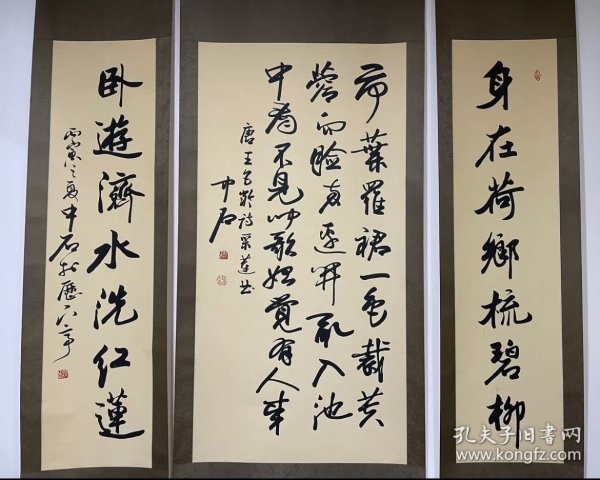 身在荷鄉梳碧柳
荷葉羅裙一色裁芙
蓉向臉兩邊開亂入池
中看不見聞歌始覺有人來
唐王昌齡詩采蓮曲
中石
卧遊濟水洗红蓮
丙寅之夏中石於歷下亭
孔夫子旧书网
www.kongfz.com